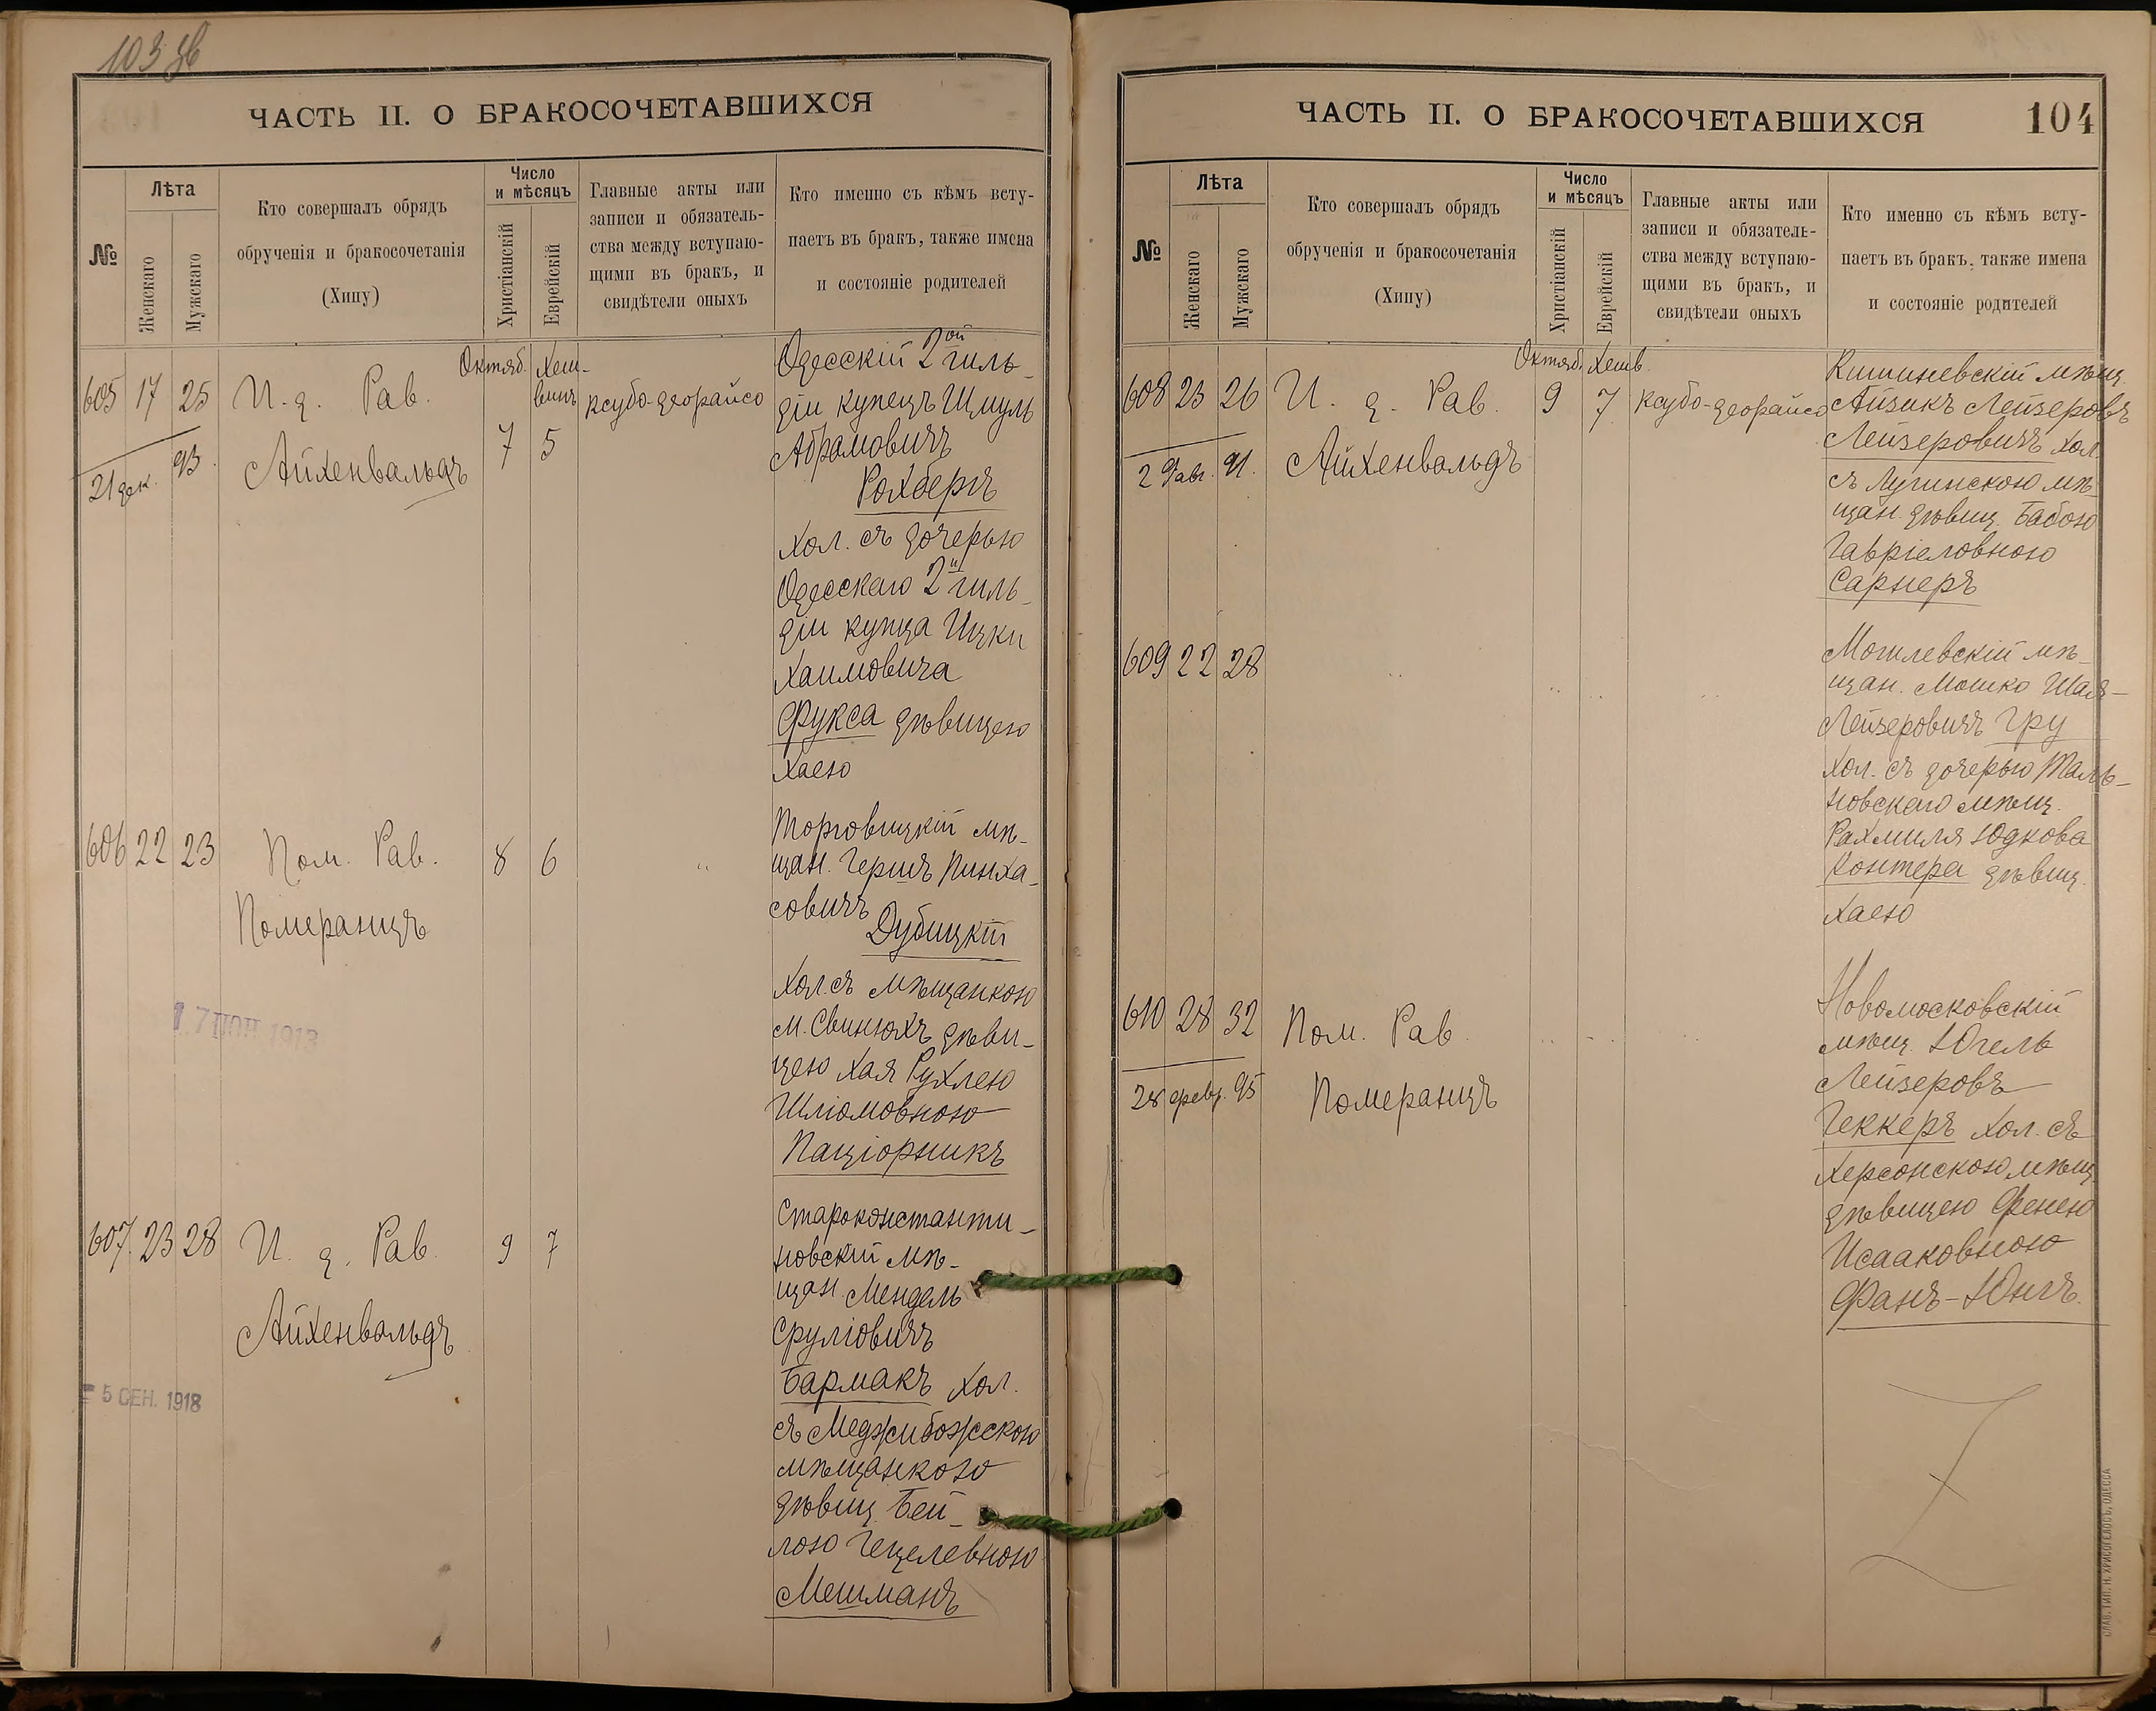 103 об
ЧАСТЬ II. О БРАКОСОЧЕТАВШИХСЯ
№
Лѣта
Женскаго
Мужскаго
Кто совершалъ обрядъ
обрученія и бракосочетанія
(Хипу)
Число
и мѣсяцъ
Христіанскій
Еврейскій
Главные акты или
записи и обязатель-
ства между вступаю-
щими въ бракъ, и
свидѣтели оныхъ
Кто именно съ кѣмъ всту-
паетъ въ бракъ, также имена
и состояніе родителей
605 17 25
И. д. Рав.
Айхенвальдъ
21 дек. 93.
Октяб.
7
Хеш-
винъ
5
ксубо-деорайсо
Одесскій 2ой гиль-
діи купецъ Шмуль
Абрамовичъ
Рохбергъ
хол. съ дочерью
Одесскаго 2й гиль-
діи купца Ицки
Хаимовича
Фукса дѣвицею
Хаею
606 22 23
Пом. Рав.
Померанцъ
8 6
"
Торговицкій мѣ-
щан. Гершъ Пинха-
совичъ
Дубицкій
хол. съ мѣщанкою
м. Свинюхъ дѣви-
цею Хая Рухлею
Шліомовною
Паціорникъ
17 ІЮН 1913
607. 23 28
И. д. Рав.
Айхенвальдъ
9 7
Староконстанти-
новскій мѣ-
щан. Мендель
Сруліовичъ
Бармакъ хол.
съ Меджибожскою
мѣщанкою
дѣвиц. Бей-
лою Гецелевною
Мешманъ
5 СЕН. 1918
ЧАСТЬ II. О БРАКОСОЧЕТАВШИХСЯ
104
№
Лѣта
Женскаго
Мужскаго
Кто совершалъ обрядъ
обрученія и бракосочетанія
(Хипу)
Число
и мѣсяцъ
Христіанскій
Еврейскій
Главные акты или
записи и обязатель-
ства между вступаю-
щими въ бракъ, и
свидѣтели оныхъ
Кто именно съ кѣмъ всту-
паетъ въ бракъ, также имена
и состояніе родителей
608 23 26
И. д. Рав.
Айхенвальдъ
91.
Октяб.
9
Хешв.
7
ксубо-деорайсо
Кишиневскій мѣщ.
Айзикъ Лейзеровъ
Лейзеровичъ хол.
съ Лугинскою мѣ-
щан. дѣвиц. Бабою
Гавріеловною
Сарнеръ
609 22 28
Могилевскій мѣ-
щан. Мошко Шая-
Лейзеровичъ Гру
хол. съ дочерью Таль-
новскаго мѣщ.
Рахмиля Юдкова
Контера дѣвиц.
Хаею
610 28 32
Пом. Рав.
Померанцъ
28 февр. 95
Новомосковскій
мѣщ. Югель
Лейзеровъ
Геккеръ хол. съ
Херсонскою мѣщ.
дѣвицею Фенею
Исааковною
Фанъ-Юнгъ.
СЛАВ. ТИП. Н. ХРИСОГЕЛОСЪ, ОДЕССА